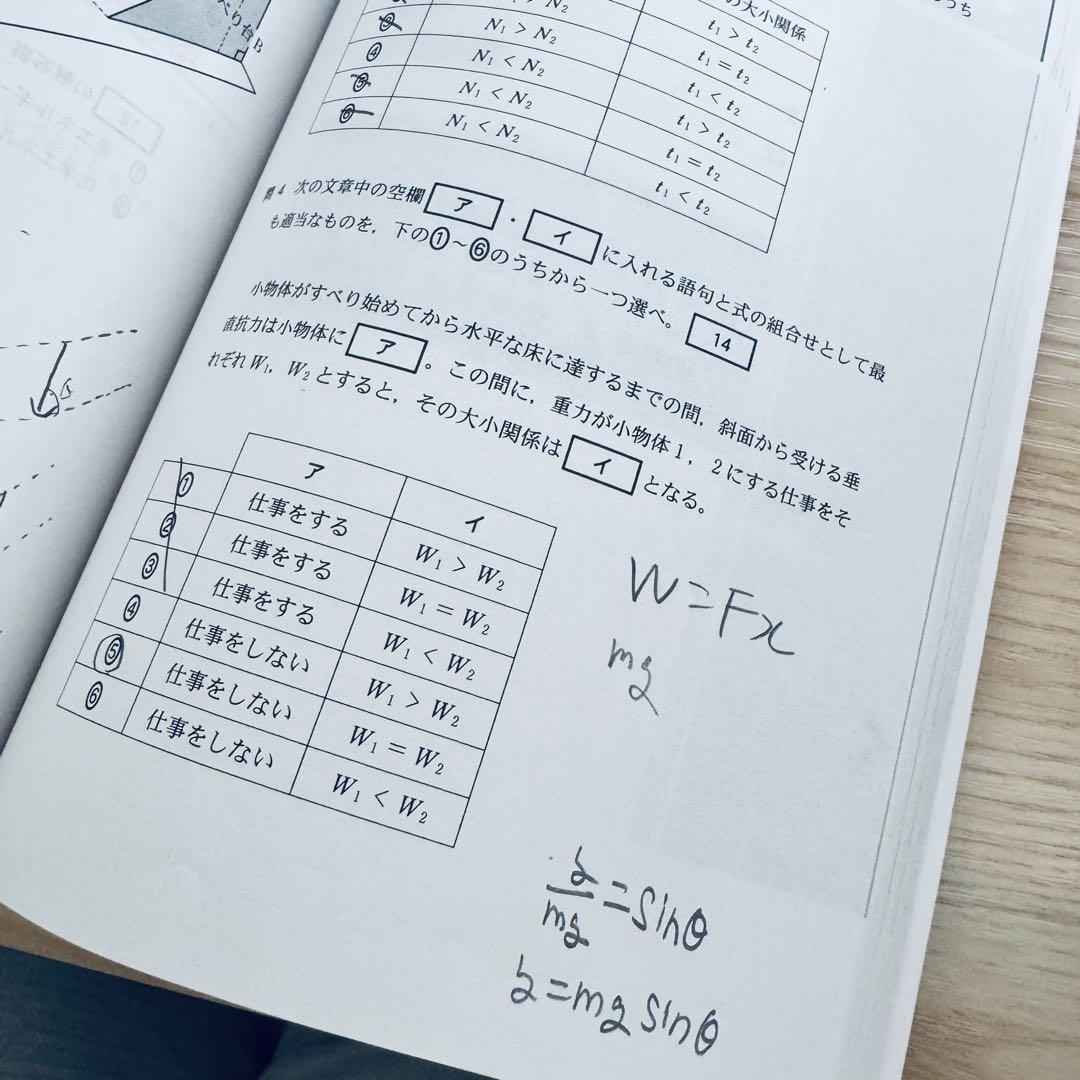 べり台B
の大小関係
うち
N₁ > N₂ t₁ > t₂
④ N₁ < N₂ t₁ = t₂
N₁ < N₂ t₁ < t₂
N₁ < N₂ t₁ > t₂
t₁ = t₂
t₁ < t₂
問4 次の文章中の空欄 ア ・ イ に入れる語句と式の組合せとして最
も適当なものを，下の①〜⑥のうちから一つ選べ。 14
小物体がすべり始めてから水平な床に達するまでの間，斜面から受ける垂
直抗力は小物体に ア 。この間に，重力が小物体1，2にする仕事をそ
れぞれW₁，W₂とすると，その大小関係は イ となる。
ア イ
① 仕事をする W₁ > W₂
② 仕事をする W₁ = W₂
③ 仕事をする W₁ < W₂
④ 仕事をしない W₁ > W₂
⑤ 仕事をしない W₁ = W₂
⑥ 仕事をしない W₁ < W₂
W=Fx
mg